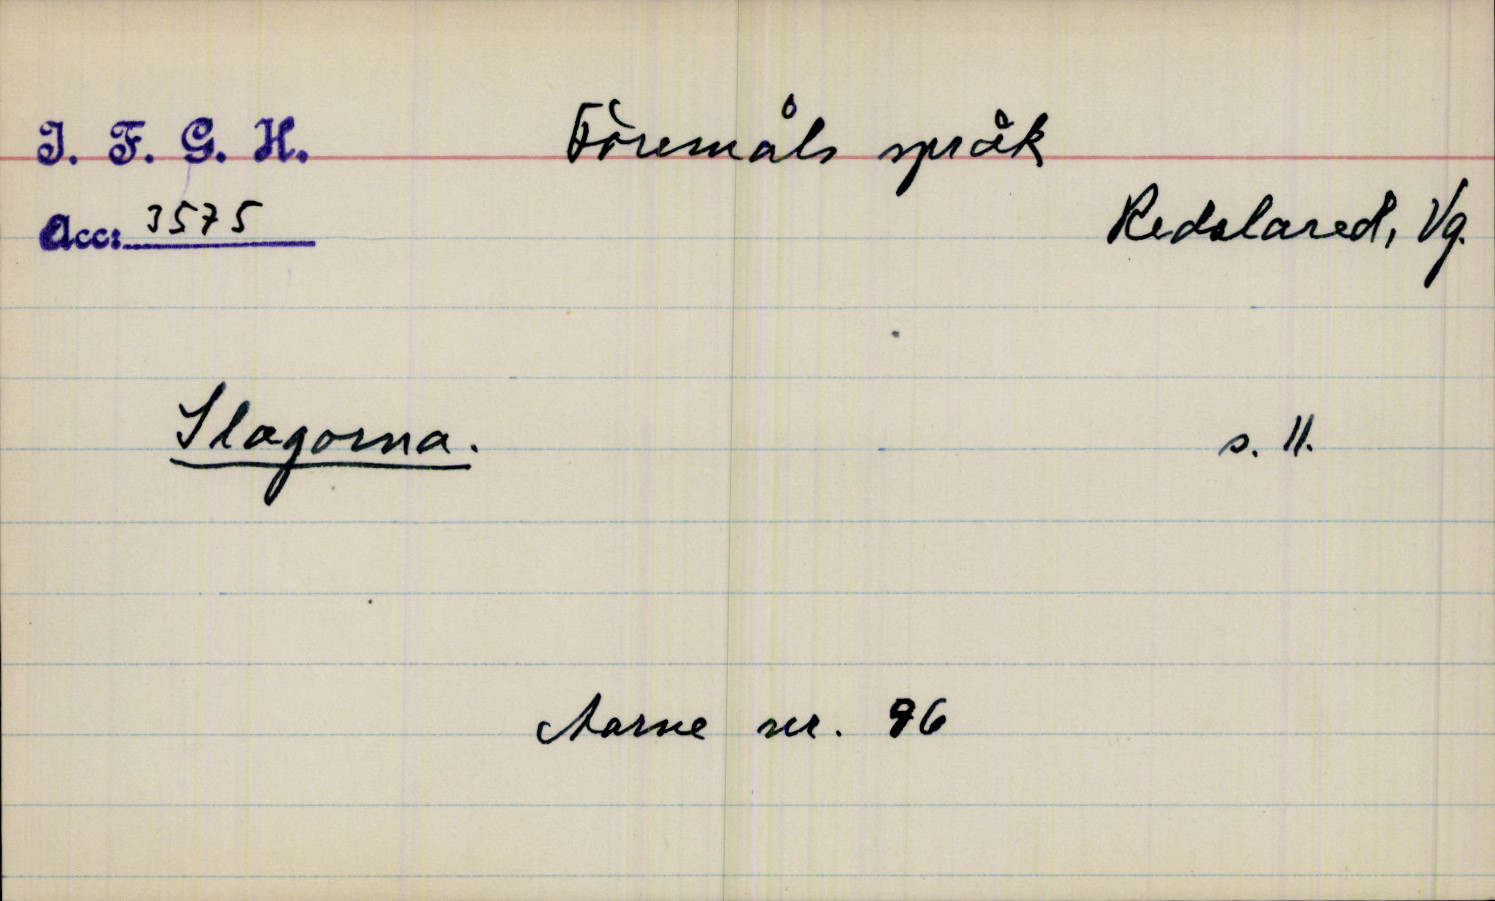 I. F. G. H.
Föremåls språk
Acc: 3575
Redslared, Vg.
Slagorna.
s. 11.
Aarne nr. 96